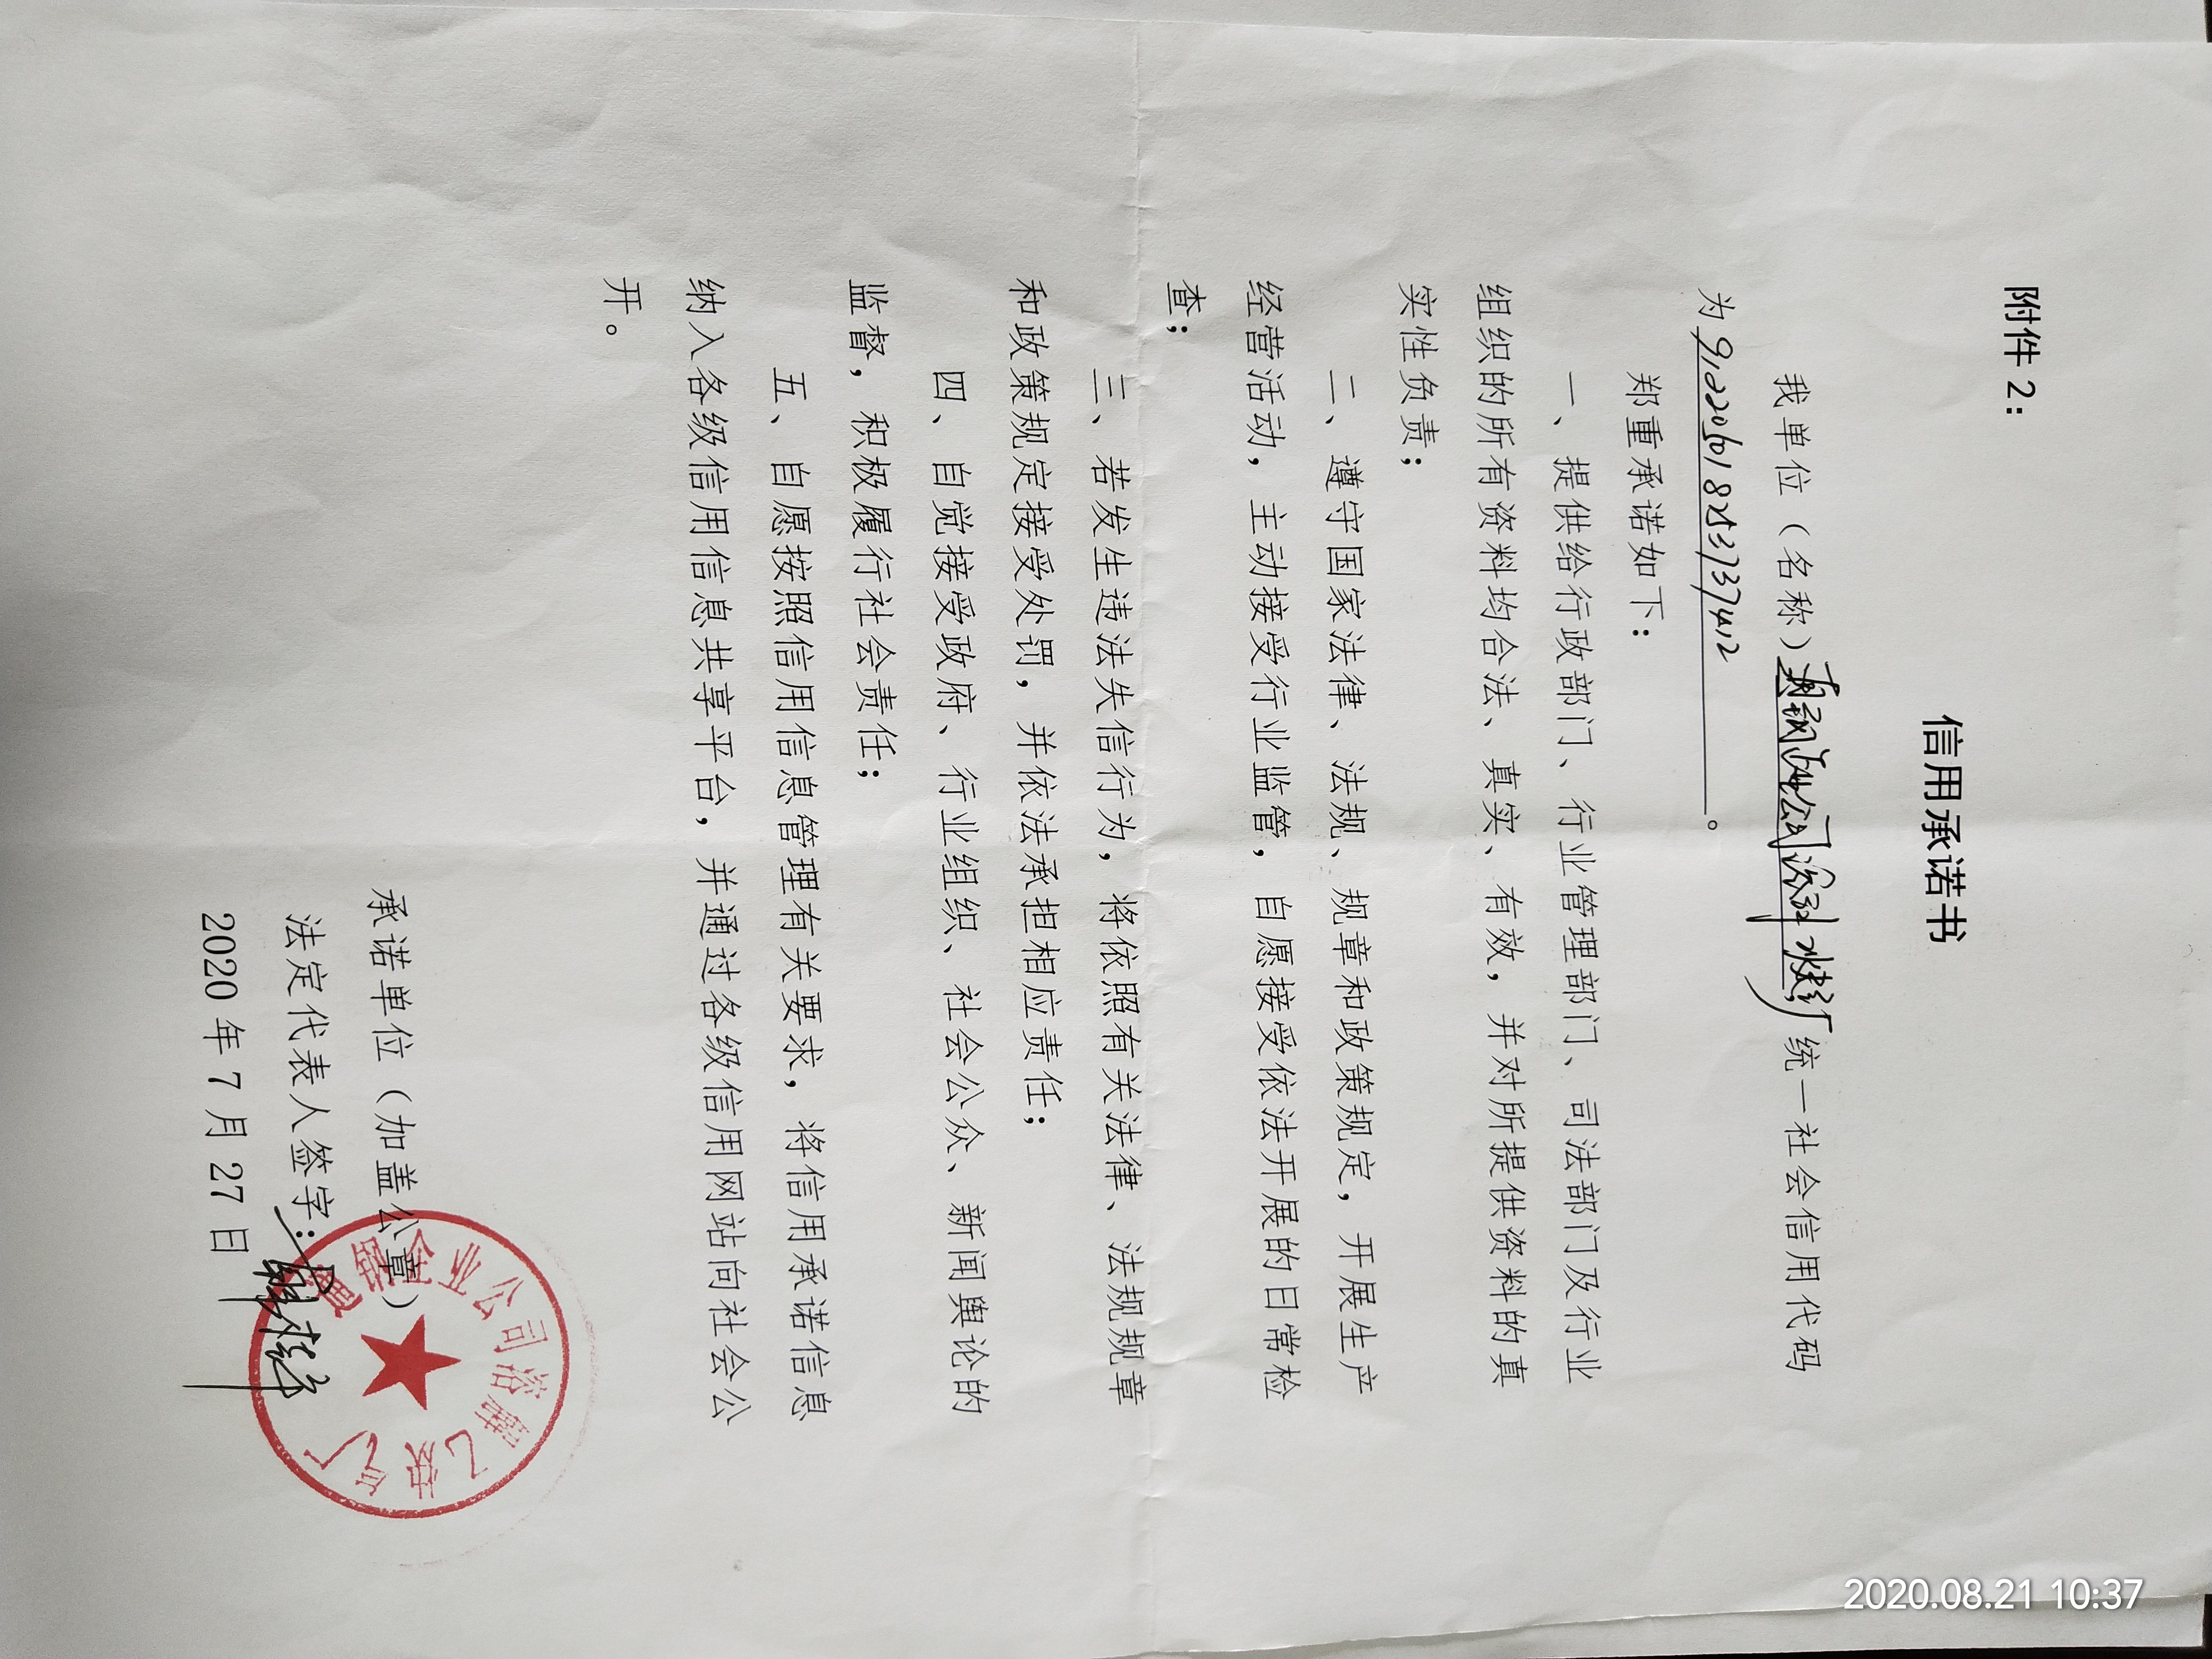 附件 2：
信用承诺书
我单位（名称）公司溶剂厂统一社会信用代码
为912205018253737412。
郑重承诺如下：
一、提供给行政部门、行业管理部门、司法部门及行业
组织的所有资料均合法、真实、有效，并对所提供资料的真
实性负责；
二、遵守国家法律、法规、规章和政策规定，开展生产
经营活动，主动接受行业监管，自愿接受依法开展的日常检
查；
三、若发生违法失信行为，将依照有关法律、法规规章
和政策规定接受处罚，并依法承担相应责任；
四、自觉接受政府、行业组织、社会公众、新闻舆论的
监督，积极履行社会责任；
五、自愿按照信用信息管理有关要求，将信用承诺信息
纳入各级信用信息共享平台，并通过各级信用网站向社会公
开。
承诺单位（加盖公章）
法定代表人签字：
2020 年 7 月 27 日
2020.08.21 10:37